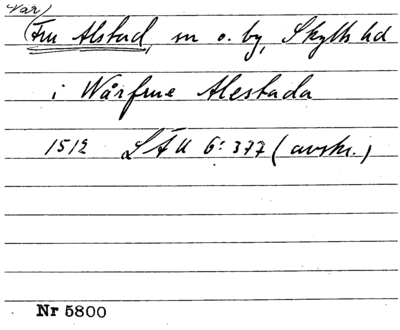 Vår)
(Fru Alstad, sn o. by, Skytts hd
i Wårfrue Alestada
1512 LÄU 6:377 (avskr.)
Nr 5800